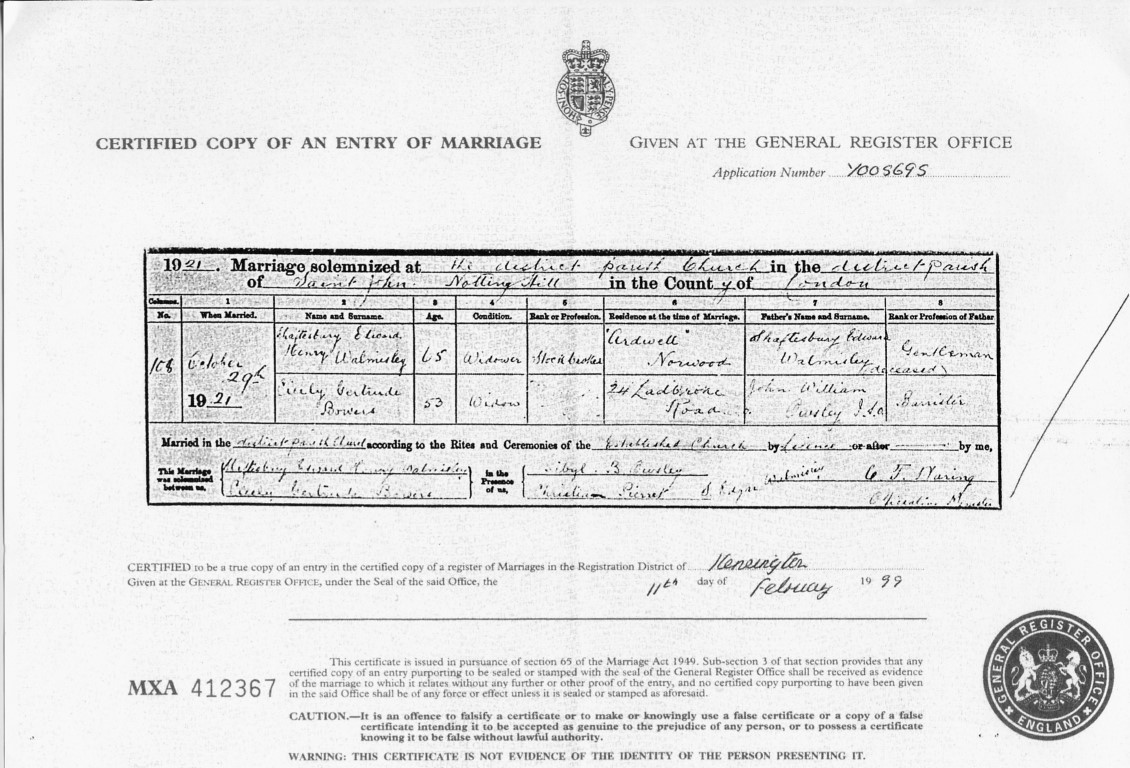 HONI SOIT QUI MAL Y PENSE
CERTIFIED COPY OF AN ENTRY OF MARRIAGE
GIVEN AT THE GENERAL REGISTER OFFICE
Application Number Y005695
1921. Marriage solemnized at the district parish Church in the district Parish
of Saint John Notting Hill in the County of London
Columns. 1 2 3 4 5 6 7 8
No. When Married. Name and Surname. Age. Condition. Rank or Profession. Residence at the time of Marriage. Father's Name and Surname. Rank or Profession of Father
108 October 29th 1921
Shaftesbury Edward Henry Walmisley 65 Widower Stockbroker "Ardwell" Norwood Shaftesbury Edward Walmisley (deceased) Gentleman
Cicely Gertrude Bowers 53 Widow 24 Ladbroke Road John William Barrister
Married in the district parish Church according to the Rites and Ceremonies of the Established Church by Licence or after by me,
This Marriage was solemnized between us,
Shaftesbury Edward Henry Walmisley
Cicely Gertrude Bowers
in the Presence of us,
Sibyl B
Pierret S. Edgar Walmisley
Officiating Minister
CERTIFIED to be a true copy of an entry in the certified copy of a register of Marriages in the Registration District of Kensington
Given at the GENERAL REGISTER OFFICE, under the Seal of the said Office, the 11th day of February 1999
MXA 412367
This certificate is issued in pursuance of section 65 of the Marriage Act 1949. Sub-section 3 of that section provides that any
certified copy of an entry purporting to be sealed or stamped with the seal of the General Register Office shall be received as evidence
of the marriage to which it relates without any further or other proof of the entry, and no certified copy purporting to have been given
in the said Office shall be of any force or effect unless it is sealed or stamped as aforesaid.
CAUTION.—It is an offence to falsify a certificate or to make or knowingly use a false certificate or a copy of a false
certificate intending it to be accepted as genuine to the prejudice of any person, or to possess a certificate
knowing it to be false without lawful authority.
WARNING: THIS CERTIFICATE IS NOT EVIDENCE OF THE IDENTITY OF THE PERSON PRESENTING IT.
GENERAL REGISTER OFFICE
ENGLAND